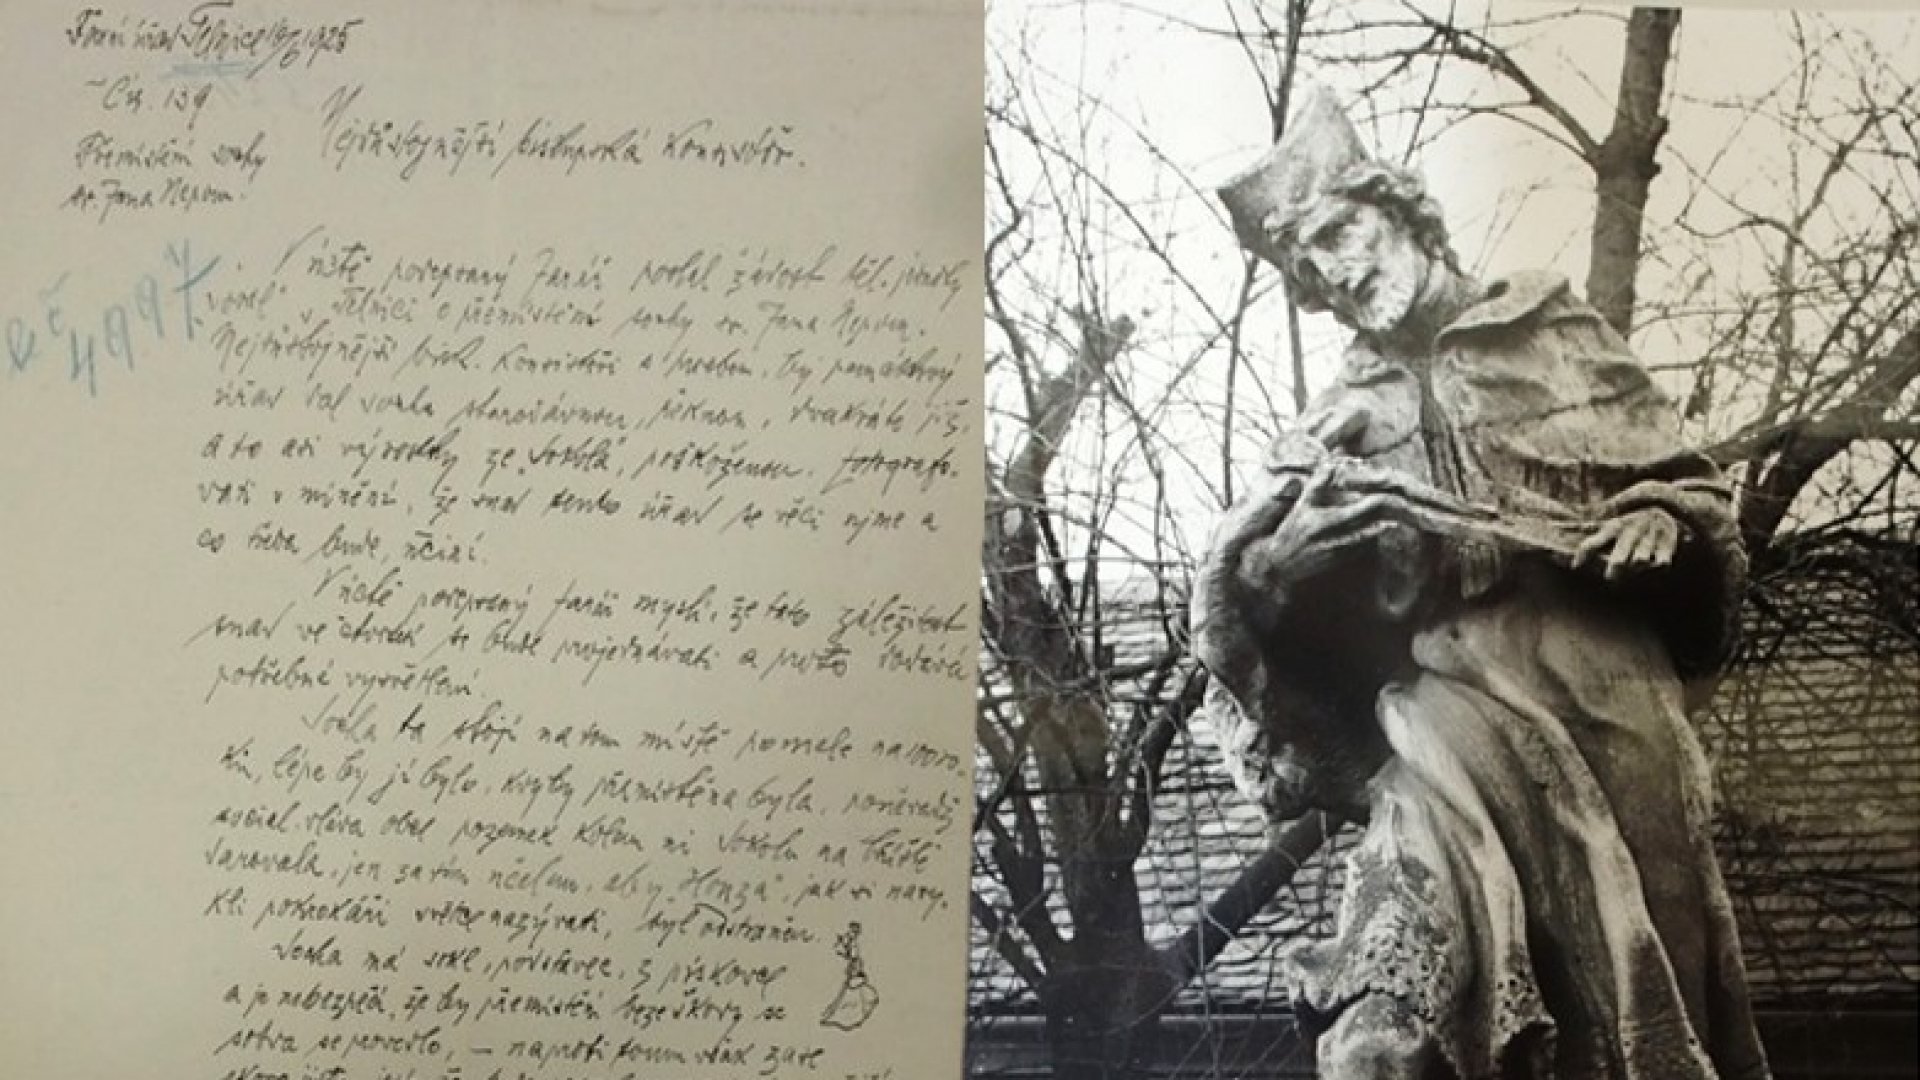 Farní úřad Telnice 18/6 1925
Čís. 139
Přemístění sochy
sv. Jana Nepom.
Nejdůstojnější biskupská konsistoř.
č 4997
V úctě podepsaný farář poslal žádost těl. jednoty
"Orel" v Telnici o přemístění sochy sv. Jana Nepom.
Nejdůstojnější bisk. konsistoři s prosbou, by památkový
úřad dal sochu starodávnou, řeknou, dvakráte již,
a to asi výrostky ze "Sokola", poškozenou, fotografo-
vati v mínění, že snad tento úřad se věci ujme a
co třeba bude, učiní.
V úctě podepsaný farář myslí, že tato záležitost
snad ve se bude projednávati a proto podává
potřebné vysvětlení.
Socha ta stojí na tom místě pomale na 100 ro-
ků, lépe by jí bylo, kdyby přemístěna byla, poněvadž
social. obec pozemek kolem ní Sokolu na hřiště
darovala, jen za tím účelem, aby "Honza", jak si navy-
kli pokrokáři světce nazývati, byl odstraněn.
Socha má sokl, podstavec, z pískovce
a je nebezpečí, že by přemístění beze škody se
sotva se povedlo, — naproti tomu však zase